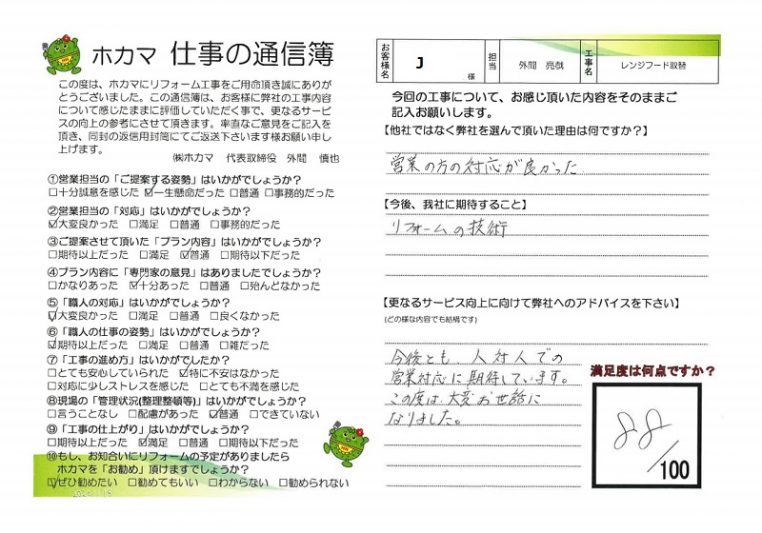 ホカマ 仕事の通信簿
この度は、ホカマにリフォーム工事をご用命頂き誠にありが
とうございました。この通信簿は、お客様に弊社の工事内容
について感じたままに評価していただく事で、更なるサービ
スの向上の参考にさせて頂きます。率直なご意見をご記入を
頂き、同封の返信用封筒にてご返送下さいます様お願い申し
上げます。
㈱ホカマ 代表取締役 外間 慎也
①営業担当の「ご提案する姿勢」はいかがでしょうか？
□十分誠意を感じた ☑一生懸命だった □普通 □事務的だった
②営業担当の「対応」はいかがでしょうか？
☑大変良かった □満足 □普通 □事務的だった
③ご提案させて頂いた「プラン内容」はいかがでしょうか？
□期待以上だった □満足 ☑普通 □期待以下だった
④プラン内容に「専門家の意見」はありましたでしょうか？
□かなりあった ☑十分あった □普通 □殆んどなかった
⑤「職人の対応」はいかがでしょうか？
☑大変良かった □満足 □普通 □良くなかった
⑥「職人の仕事の姿勢」はいかがでしょうか？
☑期待以上だった □満足 □普通 □雑だった
⑦「工事の進め方」はいかがでしたか？
□とても安心していられた ☑特に不安はなかった
□対応に少しストレスを感じた □とても不満を感じた
⑧現場の「管理状況(整理整頓等)」はいかがでしょうか？
□言うことなし □配慮があった ☑普通 □できていない
⑨「工事の仕上がり」はいかがでしょうか？
□期待以上だった ☑満足 □普通 □期待以下だった
⑩もし、お知合いにリフォームの予定がありましたら
ホカマを「お勧め」頂けますでしょうか？
☑ぜひ勧めたい □勧めてもいい □わからない □勧められない
お客様名 J 様 担当 外間 亮哉 工事名 レンジフード取替
今回の工事について、お感じ頂いた内容をそのままご
記入お願いします。
【他社ではなく弊社を選んで頂いた理由は何ですか？】
営業の方の対応が良かった
【今後、我社に期待すること】
リフォームの技術
【更なるサービス向上に向けて弊社へのアドバイスを下さい】
(どの様な内容でも結構です)
今後とも、人対人での
営業対応に期待しています。
この度は、大変お世話に
なりました。
満足度は何点ですか？
88
/100